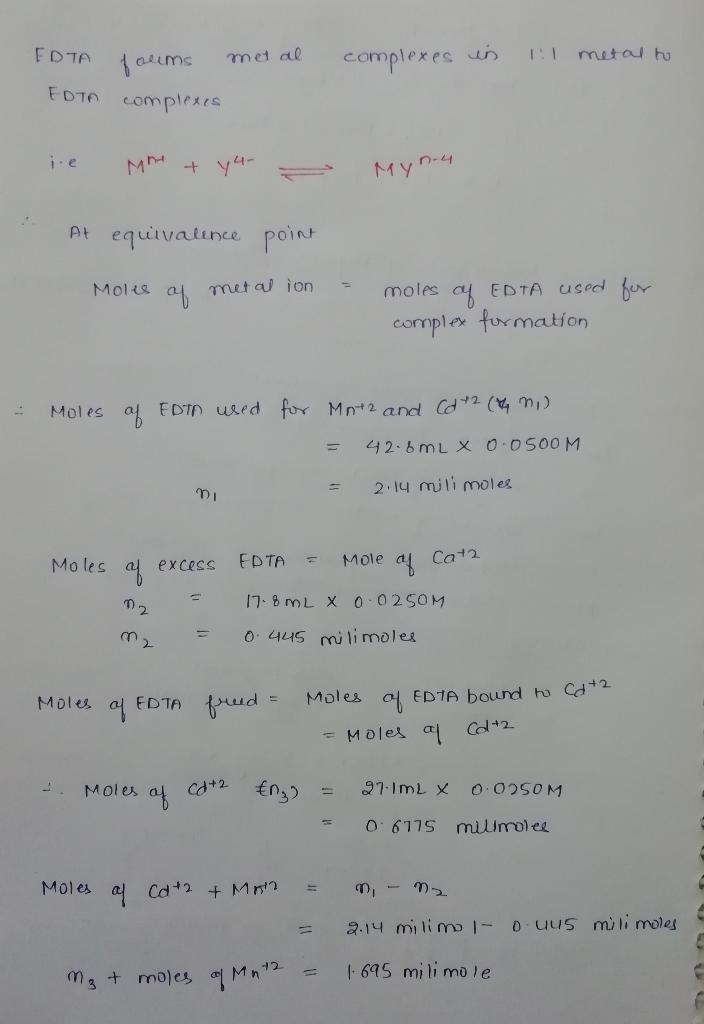 EDTA forms metal complexes in 1:1 metal to
EDTA complexes
i.e Mⁿ⁺ + Y⁴⁻ ⇌ MYⁿ⁻⁴
∴ At equivalence point
Moles of metal ion = moles of EDTA used for
complex formation
∴ Moles of EDTA used for Mn+2 and Cd+2 (n₁)
= 42.8mL X 0.0500M
n₁ = 2.14 mili moles
Moles of excess EDTA = Mole of Ca+2
n₂ = 17.8mL X 0.0250M
n₂ = 0.445 milimoles
Moles of EDTA freed = Moles of EDTA bound to Cd+2
= Moles of Cd+2
∴ Moles of Cd+2 (n₃) = 27.1mL X 0.0250M
= 0.6775 millmoles
Moles of Cd+2 + Mn+2 = n₁ - n₂
= 2.14 milimol - 0.445 milimoles
n₃ + moles of Mn+2 = 1.695 milimole